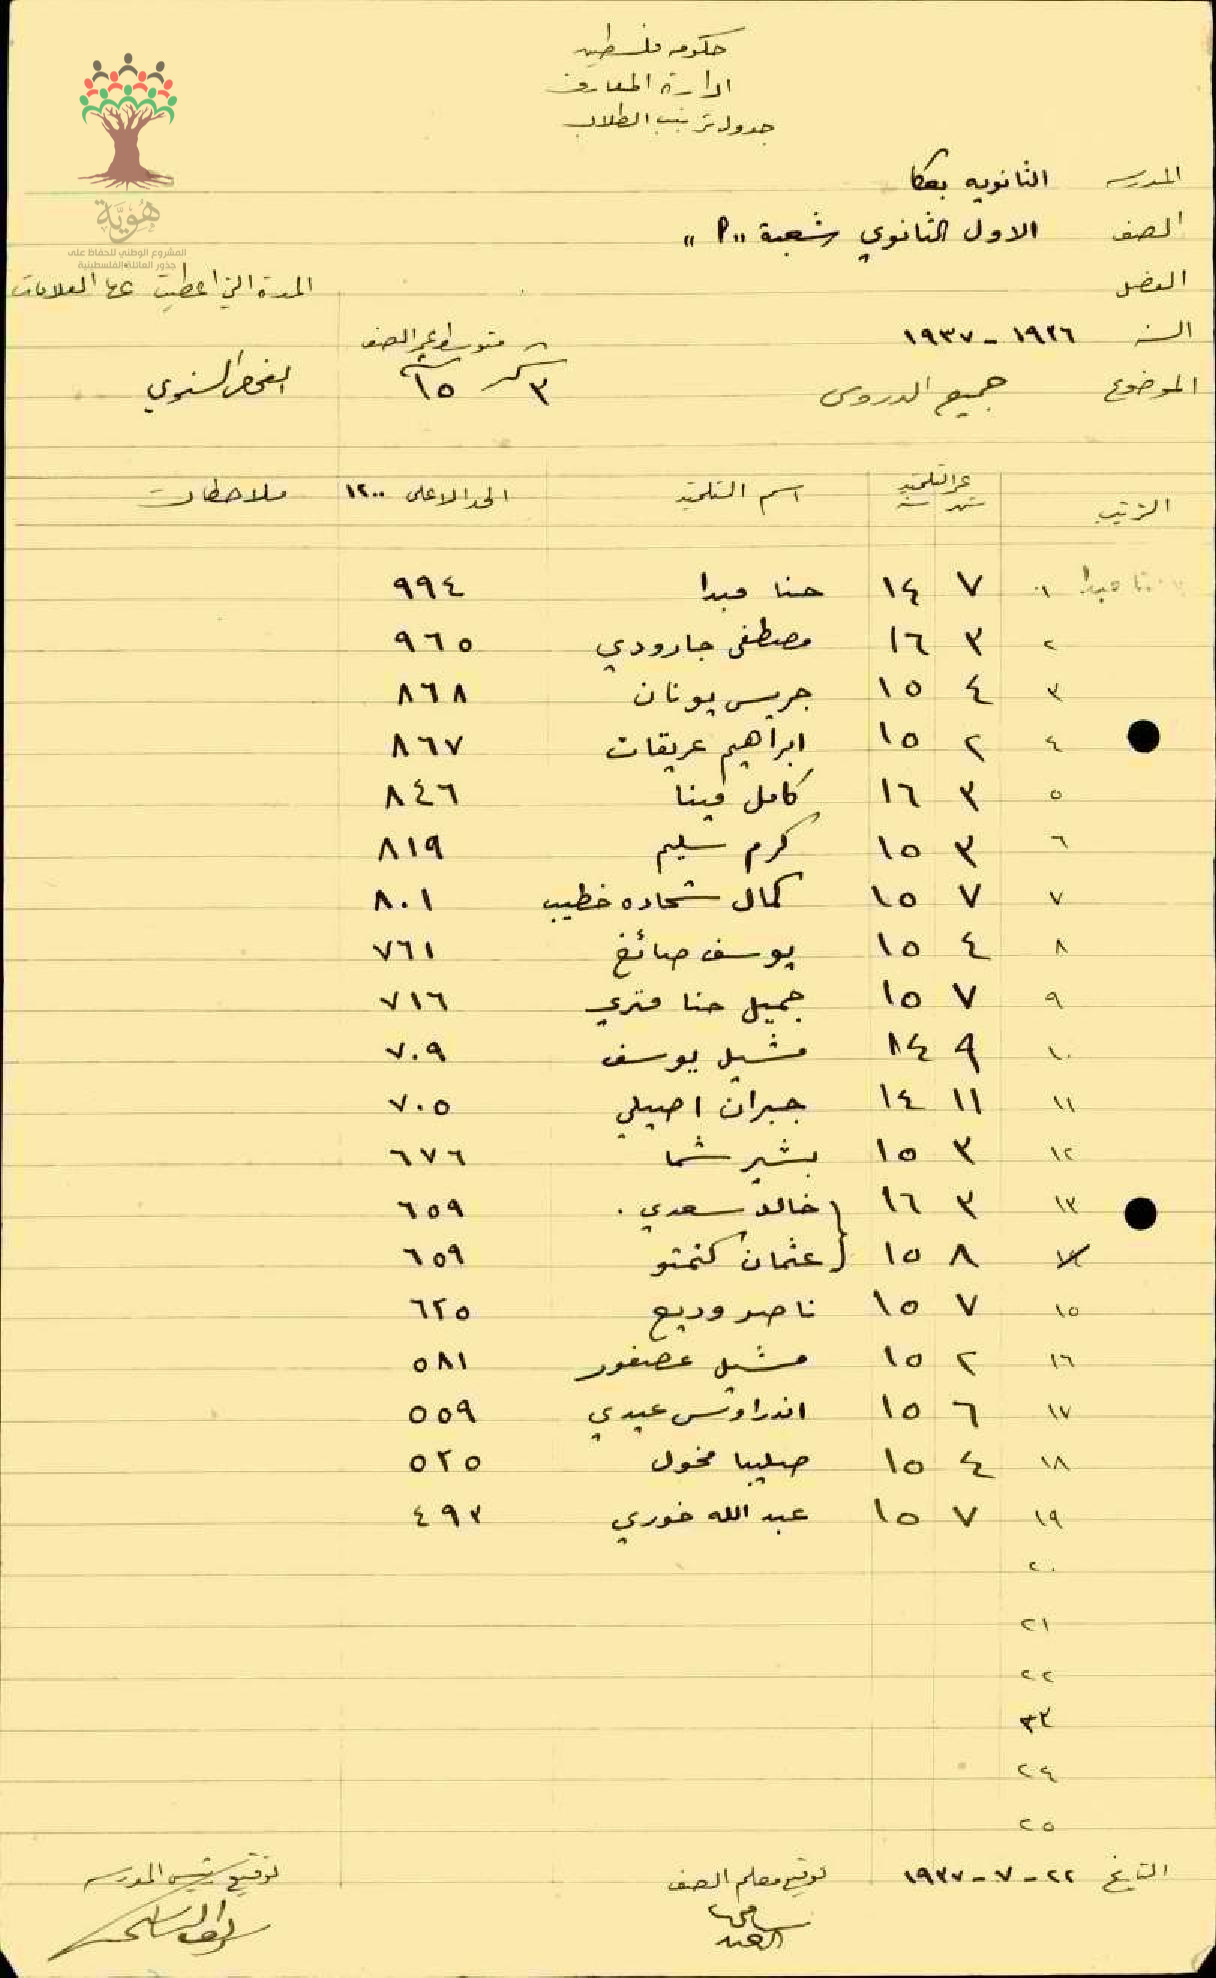 حكومه فلسطين
ادارة المعارف
جدول ترتيب الطلاب
هُوِيَّة
المشروع الوطني للحفاظ على
جذور العائلة الفلسطينية
المدرسه الثانويه بعكا
الصف الاول الثانوي شعبة "P"
الفصل المدة التي اعطيت عنها العلامات
السنه ١٩٣٦ - ١٩٣٧ متوسط عمر الصف
الموضوع جميع الدروس ٣ شهر ١٥ سنة الفحص السنوي
الترتيب عمر التلميذ شهر سنة اسم التلميذ الحد الاعلى ١٢٠٠ ملاحظات
١ ٧ ١٤ حنا ميدا ٩٩٤
٢ ٣ ١٦ مصطفى جارودي ٩٦٥
٣ ٤ ١٥ جريس يونان ٨٦٨
٤ ٢ ١٥ ابراهيم عريقات ٨٦٧
٥ ٣ ١٦ كامل مينا ٨٤٦
٦ ٣ ١٥ كرم سليم ٨١٩
٧ ٧ ١٥ كمال شحاده خطيب ٨٠١
٨ ٤ ١٥ يوسف صائغ ٧٦١
٩ ٧ ١٥ جميل حنا متري ٧١٦
١٠ ٩ ١٤ مشيل يوسف ٧٠٩
١١ ١١ ١٤ جبران اصيلي ٧٠٥
١٢ ٣ ١٥ بشير شما ٦٧٦
١٣ ٣ ١٦ خالد سعدي ٦٥٩
٨ ١٥ عثمان ٦٥٩
١٥ ٧ ١٥ ناصر وديع ٦٢٥
١٦ ٢ ١٥ مشيل عصفور ٥٨١
١٧ ٦ ١٥ اندراوس عبدي ٥٥٩
١٨ ٤ ١٥ صليبا مخول ٥٢٥
١٩ ٧ ١٥ عبد الله خوري ٤٩٣
٢٠
٢١
٢٢
٢٣
٢٤
٢٥
التاريخ ٢٢ - ٧ - ١٩٣٧ توقيع معلم الصف توقيع رئيس المدرسه